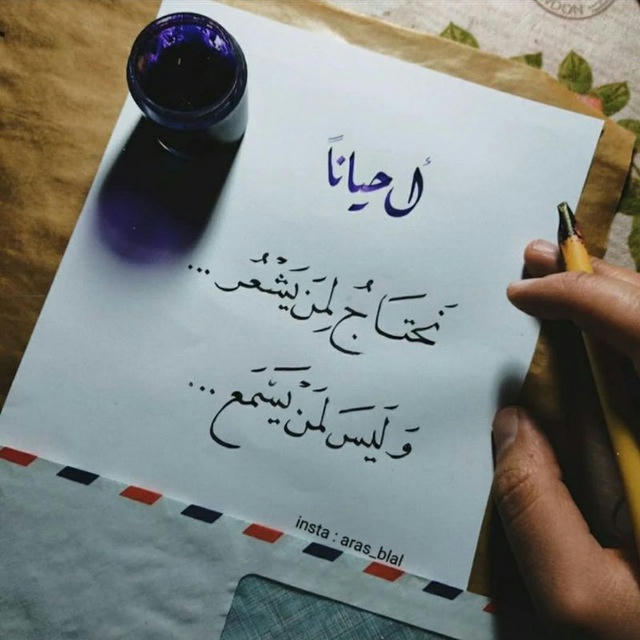 أحياناً
نَحتَاجُ لِمَن يَشْعُر ...
وَلَيسَ لَمَنْ يَسَّمَع ...
insta : aras_blal